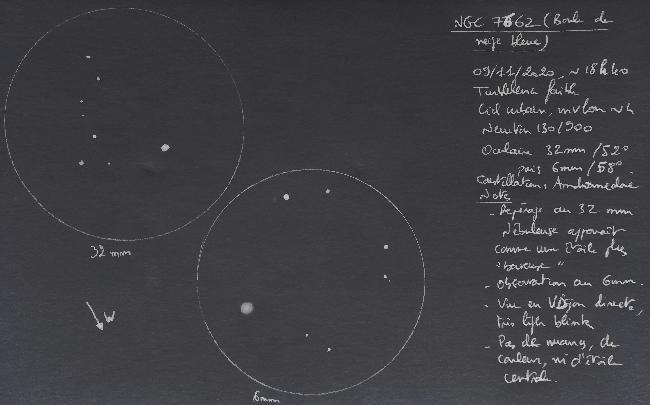 NGC 7662 (Boule de
neige bleue)
09/11/2020, ~ 18h40
Turbulence faible
Ciel urbain,
Newton 130/900
Oculaire 32mm /52°
puis 6mm /58°
Constellation, Andromedae
Note
- Repérage au 32 mm
Nébuleuse apparait
comme une étoile plus
"baveuse"
- Observation au 6mm.
- Vue en Vision directe,
très light blink
- Pas de nuance, de
couleur, ni d'étoile
centrale.
32 mm
W
6mm